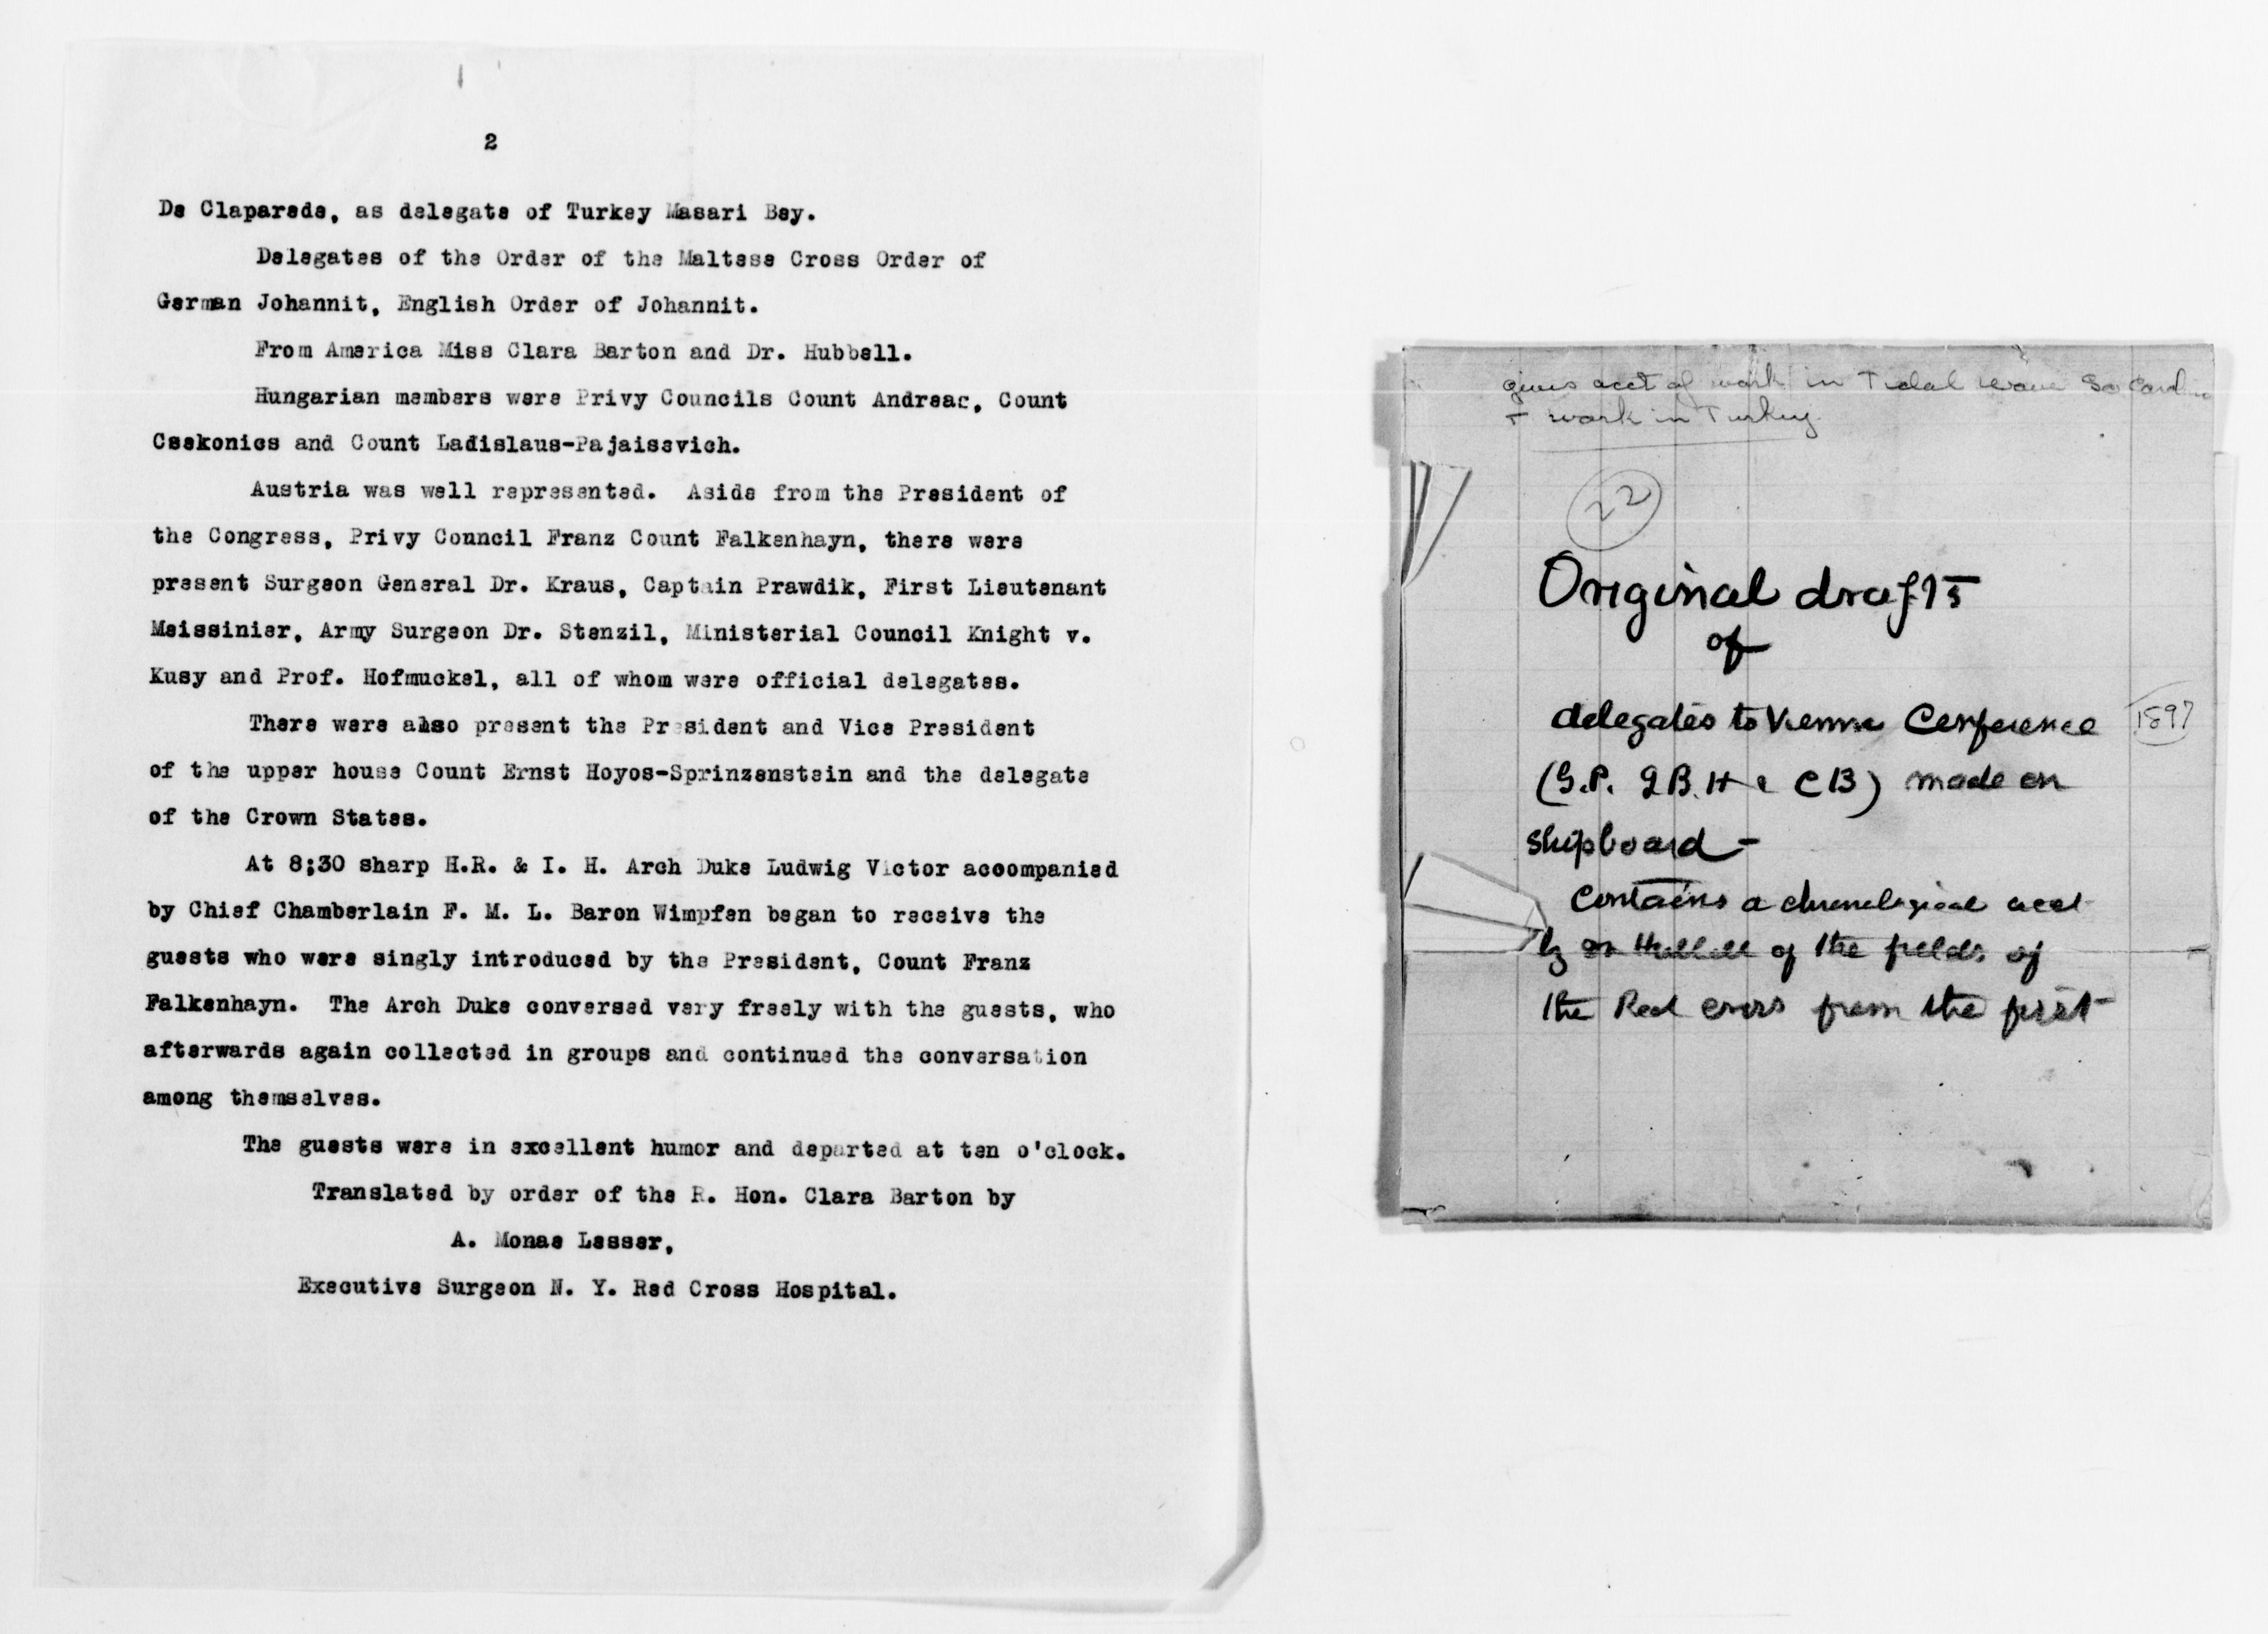 2
De Claparede, as delegate of Turkey Masari Bey.
Delegates of the Order of the Maltese Cross Order of
German Johannit, English Order of Johannit.
From America Miss Clara Barton and Dr. Hubbell.
Hungarian members were Privy Councils Count Andreac, Count
Csekonics and Count Ladislaus-Pajaissvich.
Austria was well represented. Aside from the President of
the Congress, Privy Council Franz Count Falkenhayn, there were
present Surgeon General Dr. Kraus, Captain Prawdik, First Lieutenant
Meissinier, Army Surgeon Dr. Stenzil, Ministerial Council Knight v.
Kusy and Prof. Hofmuckel, all of whom were official delegates.
There were also present the President and Vice President
of the upper house Count Ernst Hoyos-Sprinzenstein and the delegate
of the Crown States.
At 8;30 sharp H.R. & I. H. Arch Duke Ludwig Victor accompanied
by Chief Chamberlain F. M. L. Baron Wimpfen began to receive the
guests who were singly introduced by the President, Count Franz
Falkenhayn. The Arch Duke conversed very freely with the guests, who
afterwards again collected in groups and continued the conversation
among themselves.
The guests were in excellent humor and departed at ten o'clock.
Translated by order of the R. Hon. Clara Barton by
A. Monae Lesser,
Executive Surgeon N. Y. Red Cross Hospital.
gives acct of work in Tidal wave So
+ work in Turkey.
22
Original drafts
of
delegates to Vienna Conference 1897
(G.P. JB.H & CB) made on
shipboard -
Contains a chronological acct
of the fields of
the Red cross from the first